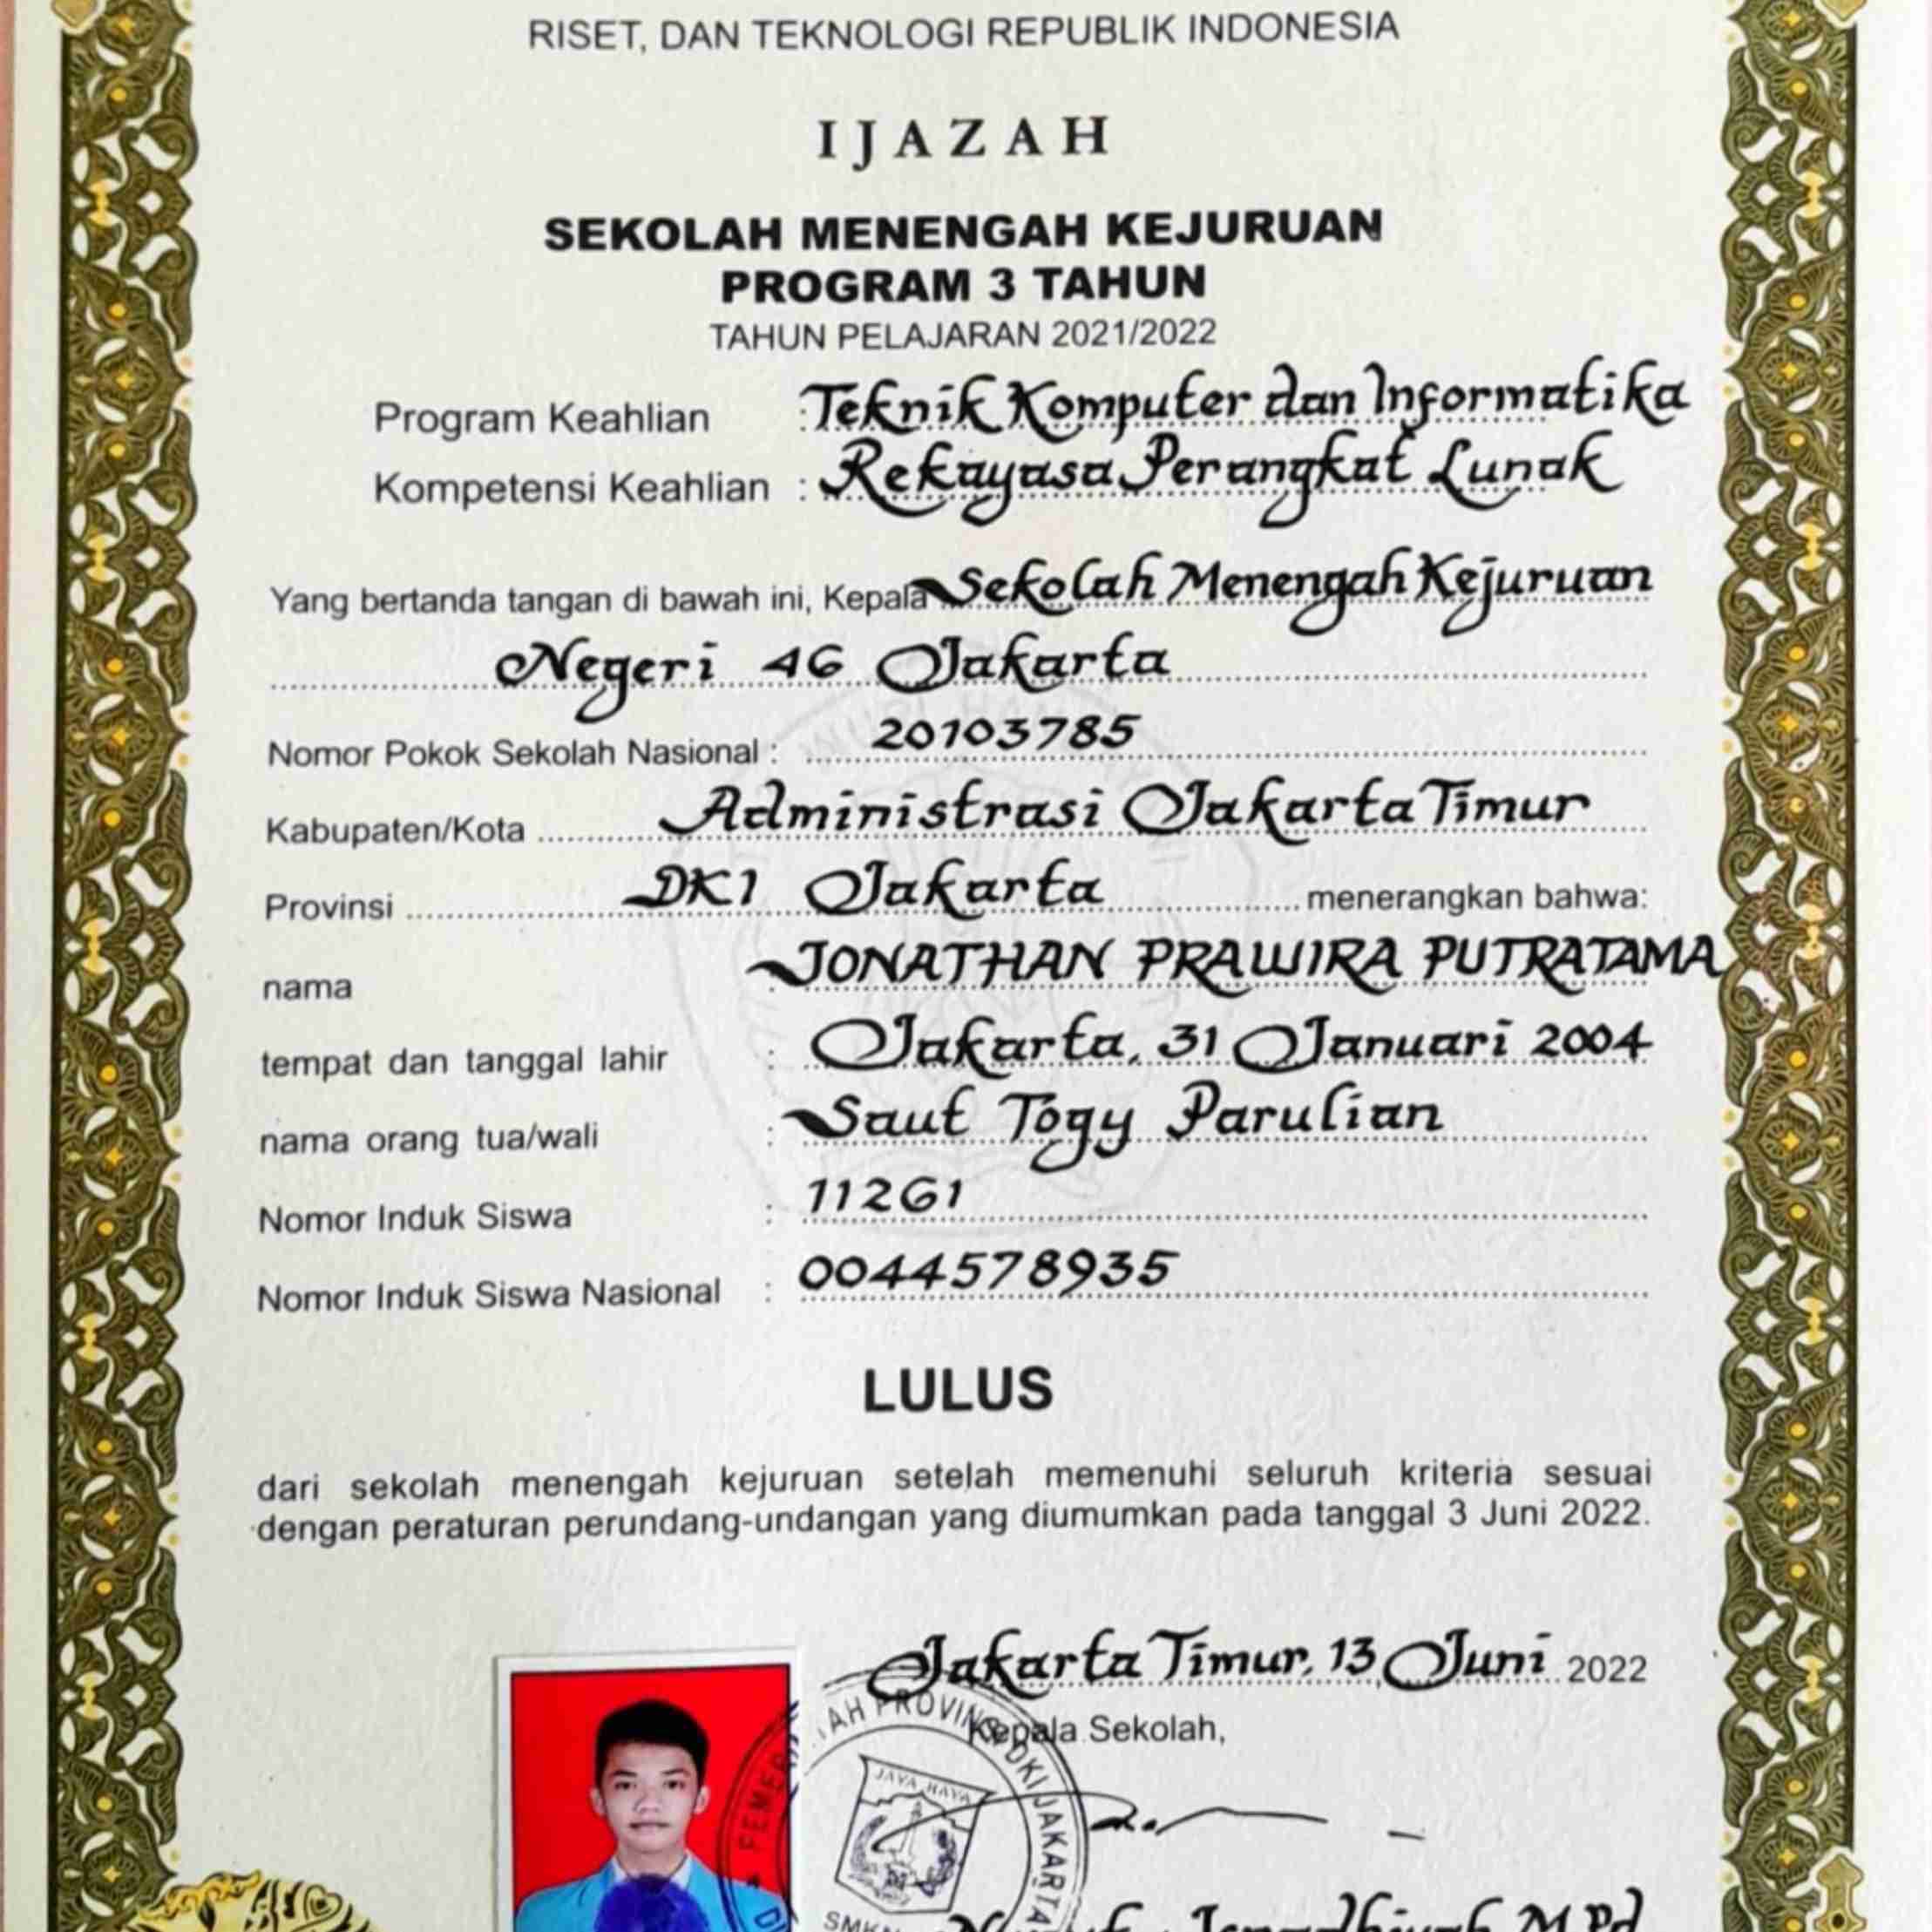 RISET, DAN TEKNOLOGI REPUBLIK INDONESIA
IJAZAH
SEKOLAH MENENGAH KEJURUAN
PROGRAM 3 TAHUN
TAHUN PELAJARAN 2021/2022
Program Keahlian : Teknik Komputer dan Informatika
Kompetensi Keahlian : Rekayasa Perangkat Lunak
Yang bertanda tangan di bawah ini, Kepala Sekolah Menengah Kejuruan
Negeri 46 Jakarta
Nomor Pokok Sekolah Nasional : 20103785
Kabupaten/Kota Administrasi Jakarta Timur
Provinsi DKI Jakarta menerangkan bahwa:
nama : JONATHAN PRAWIRA PUTRATAMA
tempat dan tanggal lahir : Jakarta, 31 Januari 2004
nama orang tua/wali : Saut Togy Parulian
Nomor Induk Siswa : 11261
Nomor Induk Siswa Nasional : 0044578935
LULUS
dari sekolah menengah kejuruan setelah memenuhi seluruh kriteria sesuai
dengan peraturan perundang-undangan yang diumumkan pada tanggal 3 Juni 2022.
Jakarta Timur, 13 Juni 2022
Kepala Sekolah,
PROVINSI DKI JAKARTA
JAYA RAYA
M.Pd